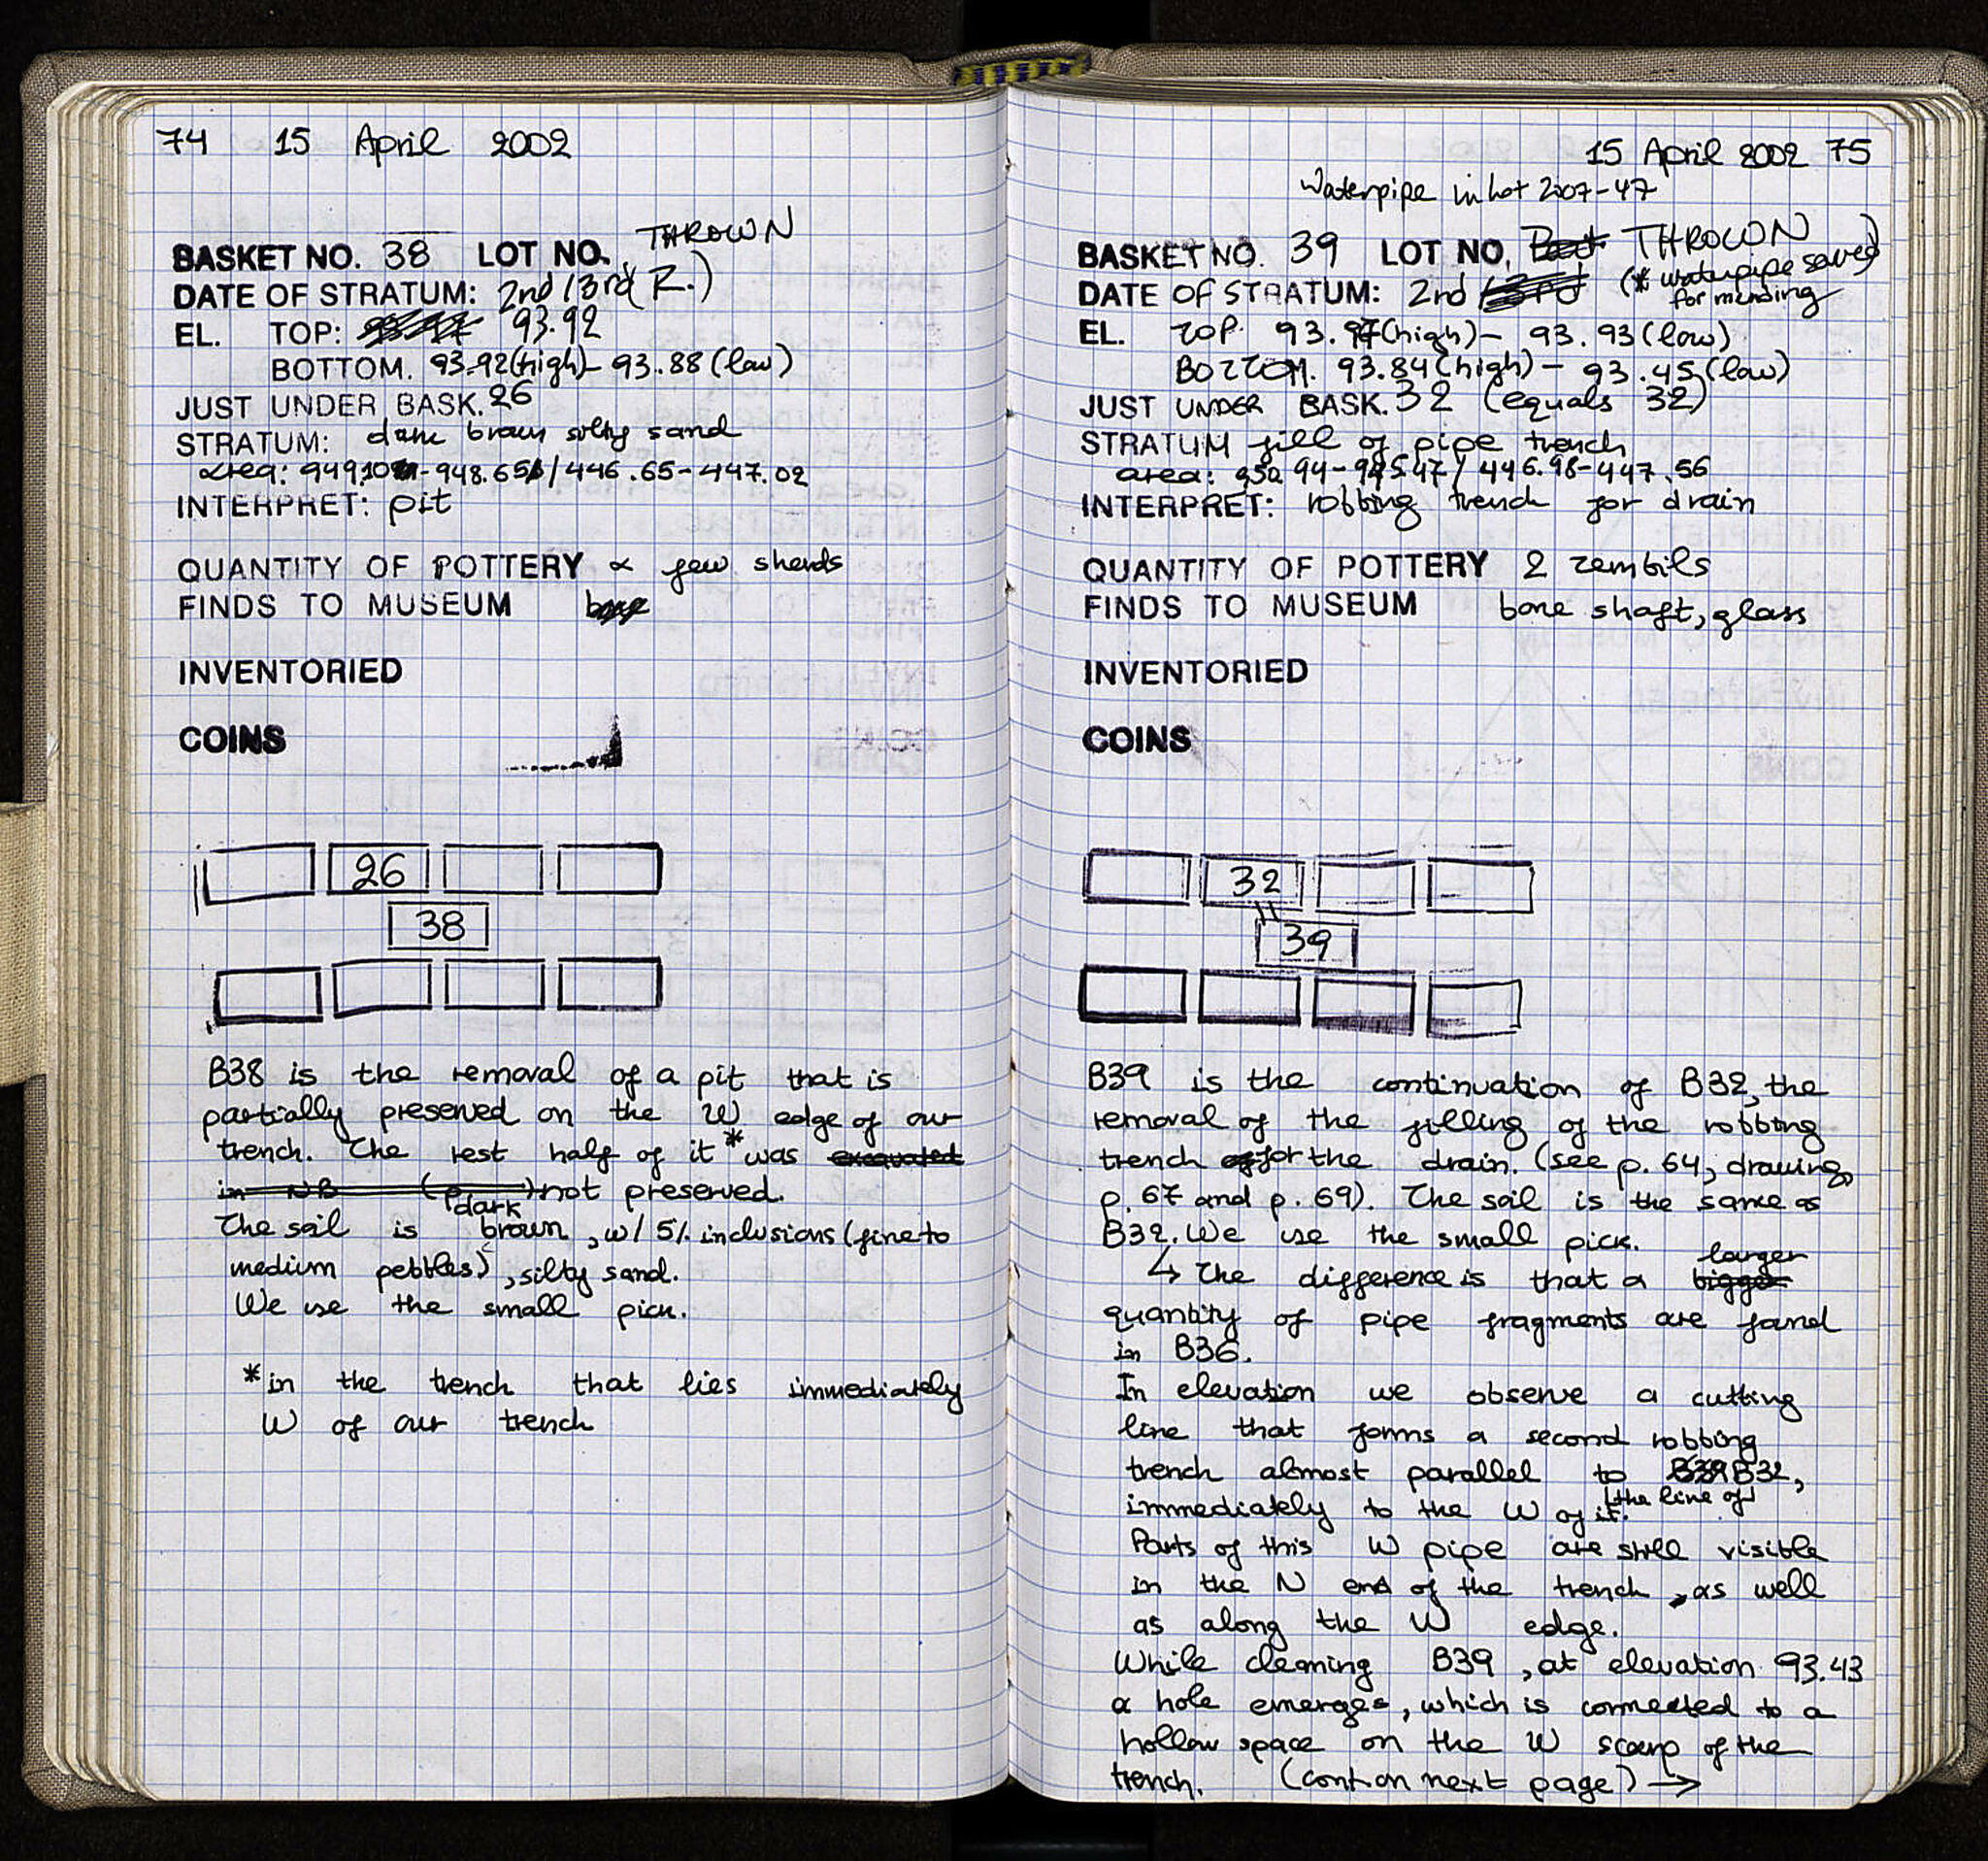 74 15 April 2002
BASKET NO. 38 LOT NO. THROWN
DATE OF STRATUM: 2nd/3rd (R.)
EL. TOP: 93.92
BOTTOM. 93.92(high)- 93.88 (low)
JUST UNDER BASK. 26
STRATUM: dark brown silty sand
area: -948.65/446.65-447.02
INTERPRET: pit
QUANTITY OF POTTERY a few sherds
FINDS TO MUSEUM
INVENTORIED
COINS
26
38
B38 is the removal of a pit that is
partially preserved on the W edge of our
trench. The rest half of it* was excavated
in NB (p ) not preserved.
The soil is dark brown, w/ 5% inclusions (fine to
medium pebbles), silty sand.
We use the small pick.
*in the trench that lies immediately
W of our trench
15 April 2002 75
Waterpipe in Lot 2007-47
BASKET NO. 39 LOT NO. THROWN
(* waterpipe saved
for mending)
DATE OF STRATUM: 2nd /3rd
EL. TOP. 93.97(high)- 93.93 (low)
BOTTOM. 93.84(high)- 93.45 (low)
JUST UNDER BASK. 32 (equals 32)
STRATUM fill of pipe trench
area: / 446.98-447.56
INTERPRET: robbing trench for drain
QUANTITY OF POTTERY 2 zembils
FINDS TO MUSEUM bone shaft, glass
INVENTORIED
COINS
32
39
B39 is the continuation of B32, the
removal of the filling of the robbing
trench for the drain. (see p. 64, drawing
p. 67 and p. 69). The soil is the same as
B32. We use the small pick.
↳ The difference is that a bigger larger
quantity of pipe fragments are found
in B36.
In elevation we observe a cutting
line that forms a second robbing
trench almost parallel to B32,
immediately to the W of it. (the line of)
Parts of this W pipe are still visible
in the N end of the trench, as well
as along the W edge.
While cleaning B39, at elevation 93.43
a hole emerges, which is connected to a
hollow space on the W scarp of the
trench. (cont. on next page) →